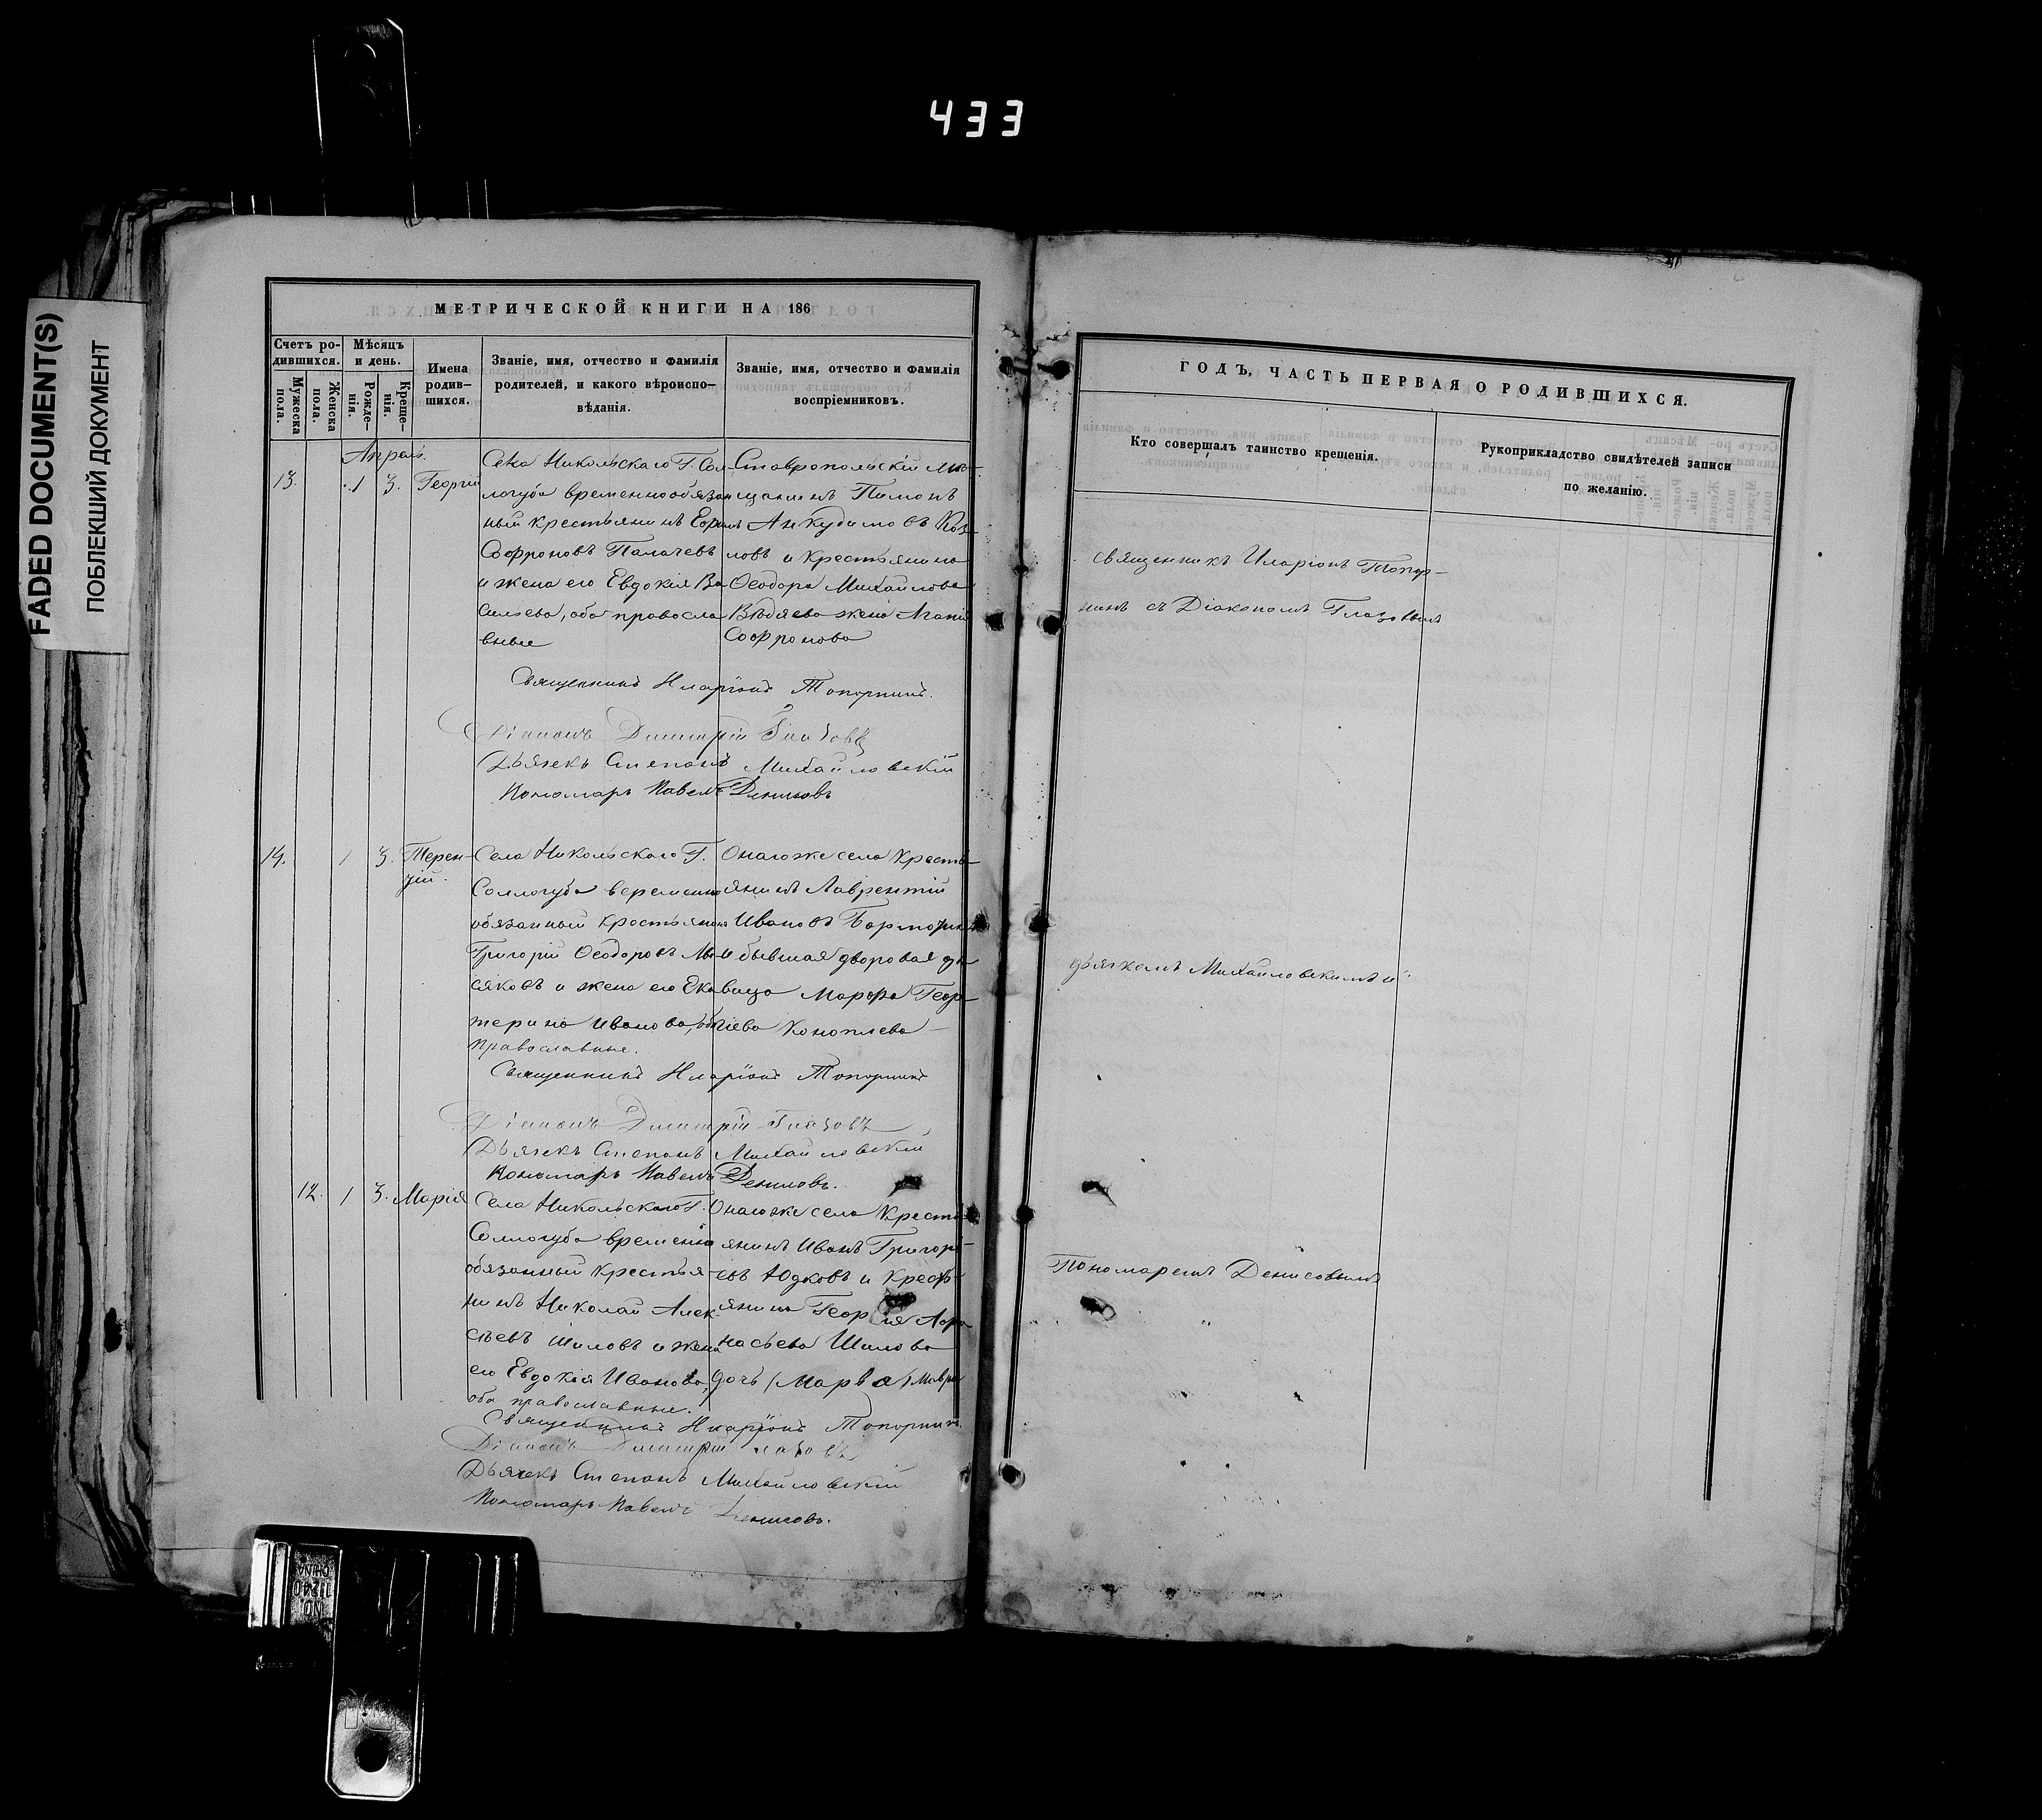 433
FADED DOCUMENT(S)
ПОБЛЕКШИЙ ДОКУМЕНТ
МЕТРИЧЕСКОЙ КНИГИ НА 186
Счетъ ро-
дившихся.
Мужеска
пола.
Женска
пола.
Мѣсяцъ
и день.
Рожде-
нія.
Креще-
нія.
Имена
родив-
шихся.
Званіе, имя, отчество и фамилія
родителей, и какого вѣроиспо-
вѣданія.
Званіе, имя, отчество и фамилія
воспріемниковъ.
13.
1
3.
Георгій
Села Никольскаго Г. Сол-
логуба временнообязан
ный крестьянинъ
Софроновъ Палачевъ
и жена его Евдокія Ва
сильева, оба правосла
вные
Ставропольскій
Пименъ
Анкудимовъ
ловъ и крестьянина
Ѳеодора Михайлова
жена
Софронова
Священникъ Иларіонъ Топорнинъ.
Діаконъ Димитрій Глазовъ
Дьячекъ Степанъ Михайловскій
Пономарь Павелъ Денисовъ
14.
1
3.
Терен-
тій.
Села Никольскаго Г.
Соллогуба временно
обязанный крестьянинъ
Григорій Ѳеодоровъ
сяковъ и жена его Ека
терина Иванова, оба
православные.
Онаго же села кресть
янинъ Лаврентій
Ивановъ
и бывшая дворовая дѣ
вица Марфа Геор
гіева Коноплева
Священникъ Иларіонъ Топорнинъ
Діаконъ Димитрій Глазовъ
Дьячекъ Степанъ Михайловскій
Пономарь Павелъ Денисовъ.
12.
1
3.
Марія
Села Никольскаго Г.
Соллогуба временно
обязанный крестья-
нинъ Николай Алек-
сѣевъ Шиловъ и жена
его Евдокія Иванова,
оба православные.
Онаго же села кресть
янинъ Иванъ Григорь-
евъ Юдковъ и
Шилова
дочь
Священникъ Иларіонъ Топорнинъ.
Діаконъ Димитрій Глазовъ
Дьячекъ Степанъ Михайловскій
Пономарь Павелъ Денисовъ.
ГОДЪ, ЧАСТЬ ПЕРВАЯ О РОДИВШИХСЯ.
Кто совершалъ таинство крещенія.
Рукоприкладство свидѣтелей записи
по желанію.
Священникъ Иларіонъ Топор-
нинъ съ Діакономъ Глазовымъ
дьячкомъ Михайловскимъ и
Пономаремъ Денисовымъ